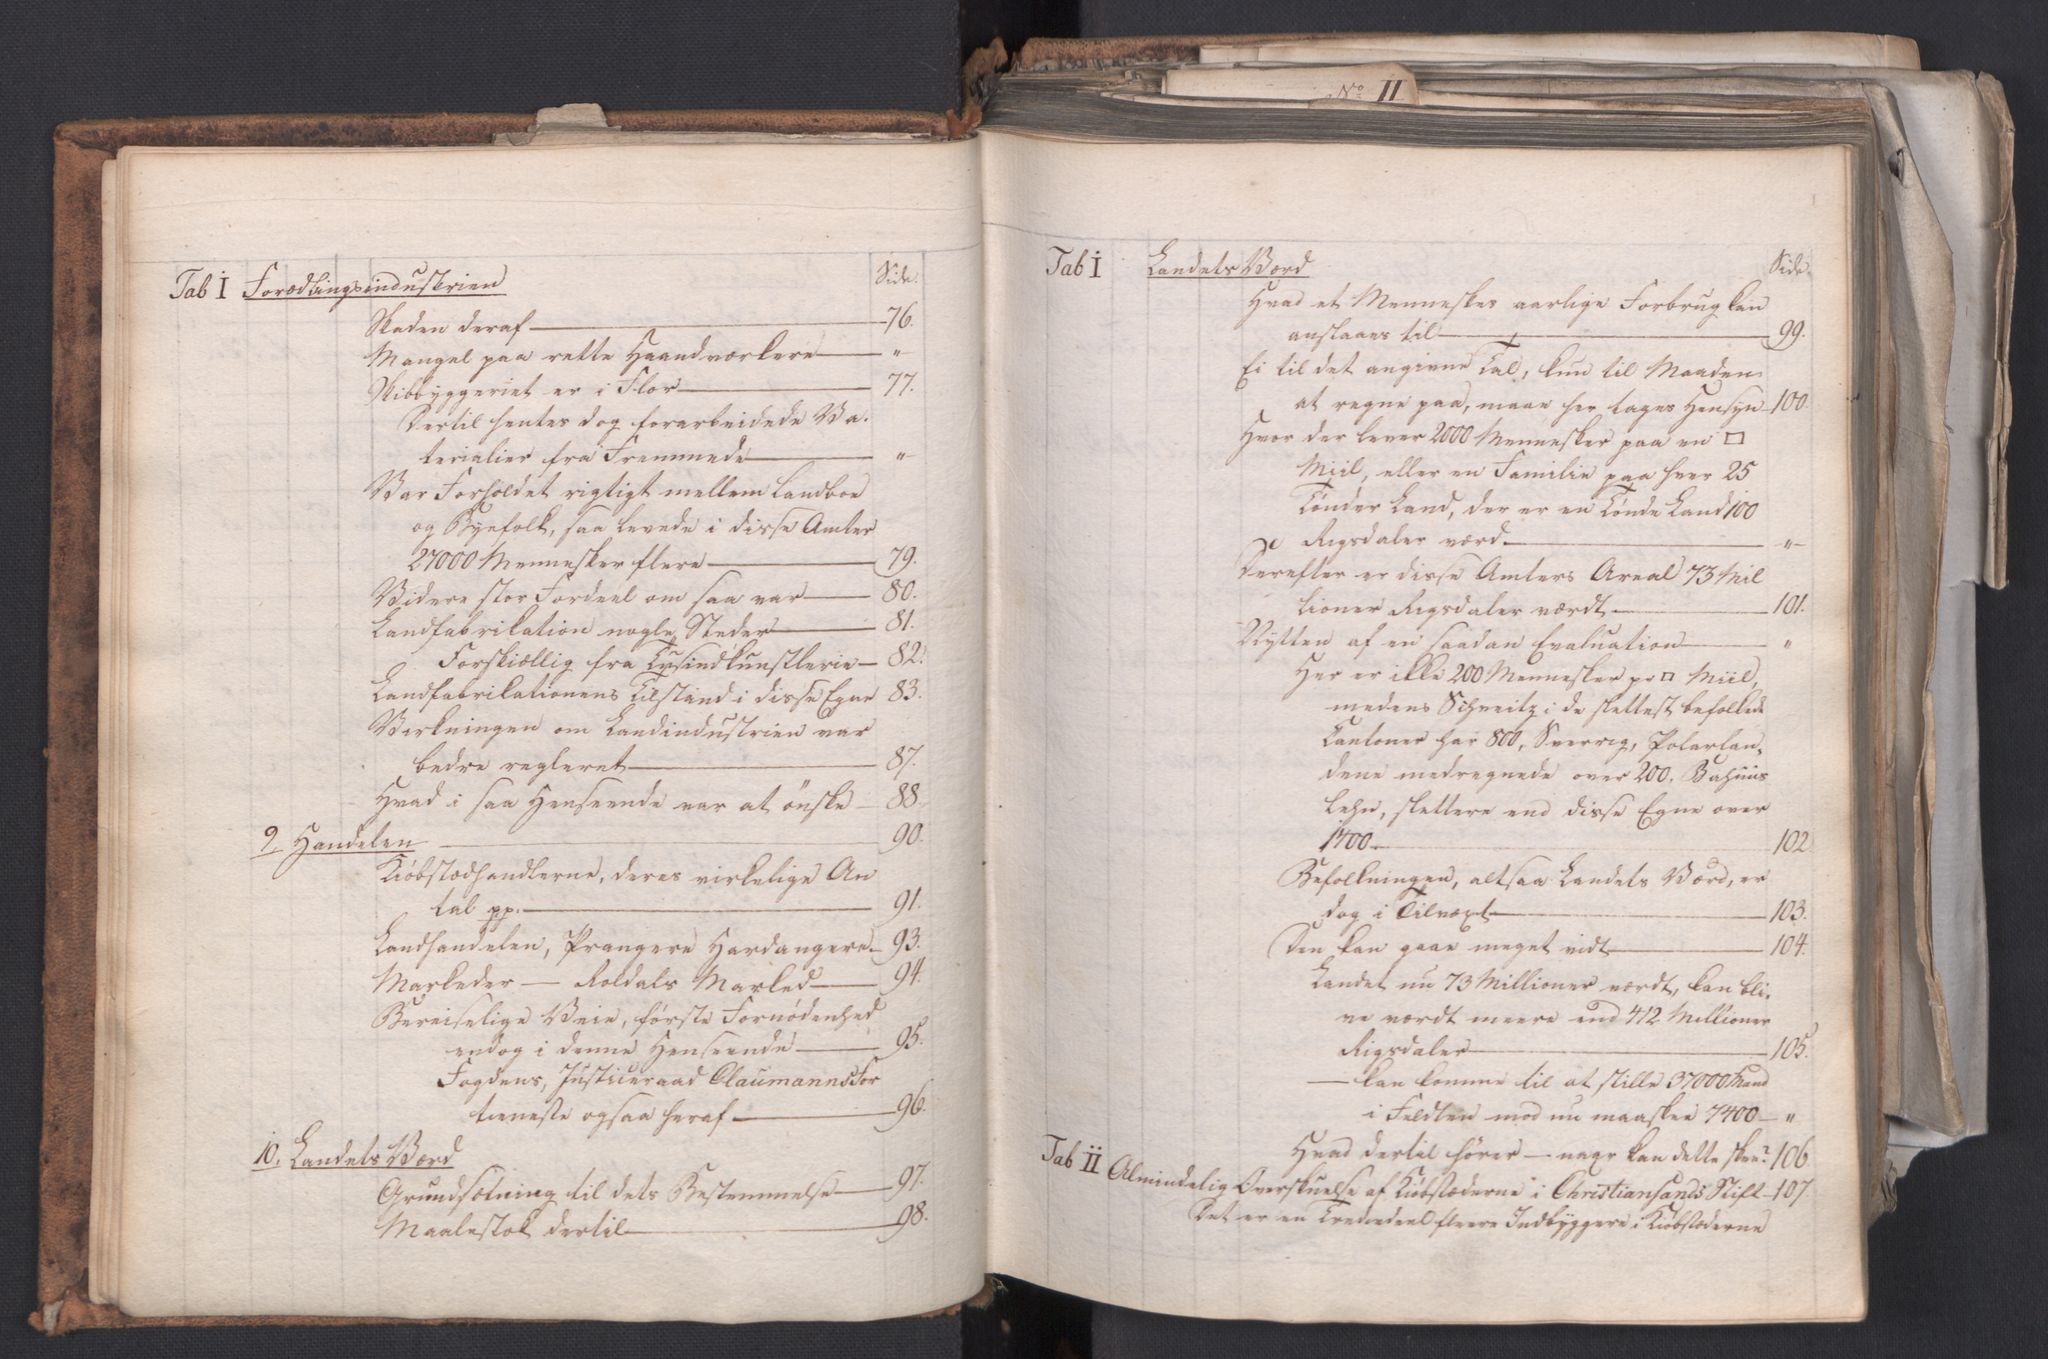 Tab I Forædlingsindustrien Side.
Skaden deraf — 76.
Mangel paa rette Haandværkere — "
Skibbyggeriet er i Flor — 77.
Dertil hentes dog forarbeidede Ma-
terialier fra Fremmede — "
Var Forholdet rigtigt mellem Landboe
og Byefolk, saa levede i disse Amter
27000 Mennesker flere — 79.
Videre stor Fordeel om saa var — 80.
Landfabrikation nogle Steder — 81.
Forskiællig fra Tusindkunstlerie — 82.
Landfabrikationens Tilstand i disse Egne 83.
Virkningen om Landindustrien var
bedre regleret — 87.
Hvad i saa Henseende var at ønske — 88.
9. Handelen — 90.
Kiøbstædhandlerne, deres virkelige An
tal pp. — 91.
Landhandelen, Prangere Hardangere — 93.
Markeder — Roldals Marked — 94.
Bereiselige Veie, første Fornødenhed
endog i denne Henseende — 95.
Fogdens, Justiceraad Claumanns For
tieneste ogsaa heraf — 96.
10. Landets Værd
Grundsætning til dets Bestemmelse — 97.
Maalestok dertil — 98.
No II
Tab I Landets Værd Side.
Hvad et Menneskes aarlige Forbrug kan
anslaaes til — 99.
Ei til det angivne Tal, kun til Maaden
at regne paa, maae her tages Hensyn 100.
Hvor der lever 2000 Mennesker paa en □
Miil, eller en Familie paa hver 25
Tønder Land, der er en Tønde Land 100
Rigsdaler værd — "
Derefter er disse Amters Areal 73 Mil
lioner Rigsdaler værdt — 101.
Nytten af en saadan Evaluation — "
Her er ikke 200 Mennesker pr □ Miil,
medens Schweitz i de slettest befolkede
Cantoner har 800, Sverrig, Polarlan-
dene medregnede over 200. Bahuus
Lehn, slettere end disse Egne over
1400. — 102
Befolkningen, altsaa Landets Værd, er
dog i Tilvæxt — 103.
Den kan gaae meget vidt — 104.
Landet nu 73 Millioner værdt, kan bli-
ve værdt meere end 412 Millioner
Rigsdaler — 105.
— kan komme til at stille 37000 Mand
i Feldten mod nu maaskee 7400 — "
Hvad dertil hører — naar kan dette skee? 106
Tab II Almindelig Overskuelse af Kiøbstæderne i Christiansands Stift — 107.
Det er en Trediedeel fleere Indbyggere i Kiøbstæderne